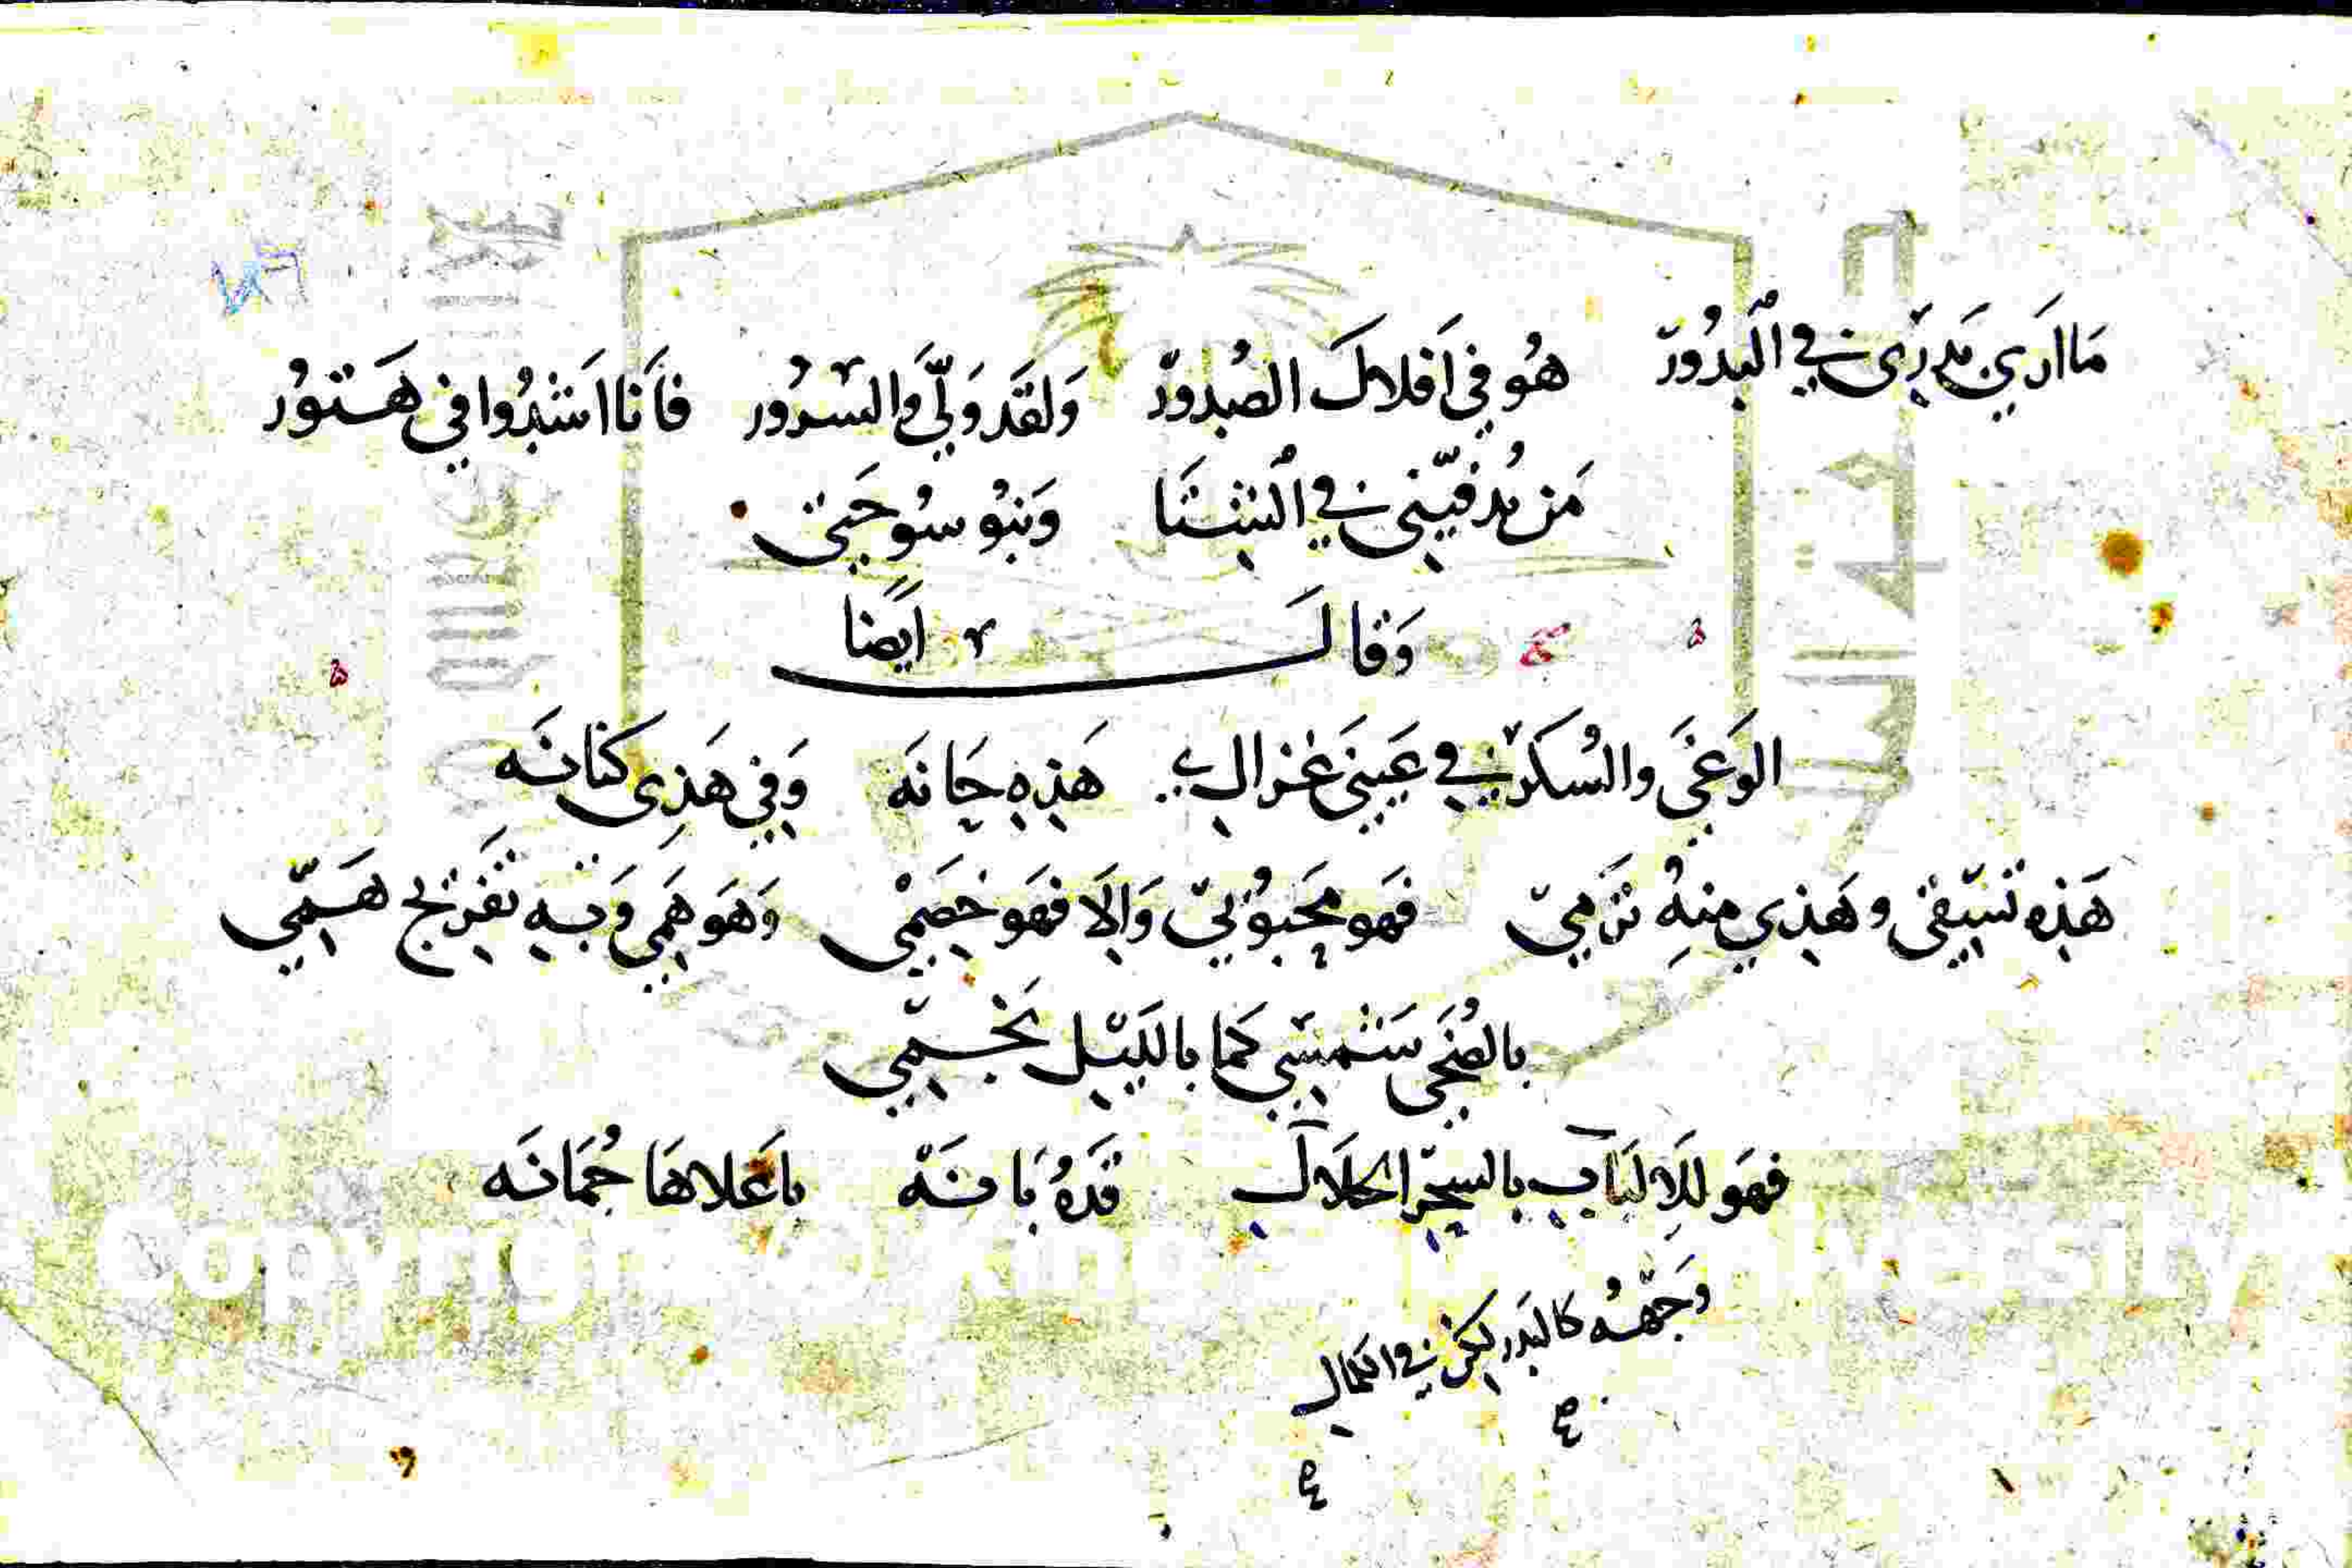 ٨٦
مَا ارَي بَدرَى في اَلبدُورّ هُو في اَفلاكَ الصُدورّ وَلقَد وَلّيَ والسرُور فاَنا اشدُوا في هَتوُر
مَن يُدفيّني في اَلشتَا وَبنوُ سوُ حَبتى
وَقالَ ايَضا
الوَغىَ والسُكر في عَينىَ غزال هَذِه حَانَه وَفي هَذِى كنانَه
هَذِه تسّقى وهَذي منهُ ترَميّ فهَو محَبوُبيّ وَاِلَا فهَو خصَمْي وَهَو هَمِي وَبه تفَريج هَمّي
بالضُحَى شمسّي كمَا بالليَل نجَمّي
فهَو للَالبَاب بالسحّر الحلَال قَدهُ بَانَهْ باعَلاهَا جُمَانَه
وَجهّهُ كالبَدر لكن في الكمال